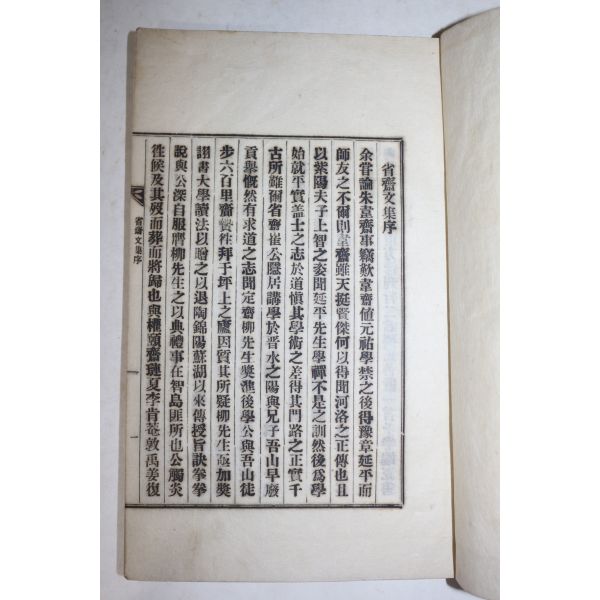 省齋文集序
余甞論朱韋齋事竊歎韋齋値元祐學禁之後得豫章延平而
師友之不爾則韋齋雖天挺賢傑何以得聞河洛之正傳也且
以紫陽夫子上智之姿聞延平先生學禪不是之訓然後爲學
始就平實盖士之志於道愼其學術之差得其門路之正實千
古所難爾省齋崔公隱居講學於晋水之陽與兄子吾山早廢
貢擧慨然有求道之志聞定齋柳先生奬進後學公與吾山徒
步六百里齋贄徃拜于坪上之廬因質其所疑柳先生亟加奬
詡書大學讀法以贈之以退陶錦陽蘇湖以來傳授旨訣拳拳
說與公深自服膺柳先生之以典禮事在智島匪所也公觸炎
徃候及其歿而葬而將歸也與權頤齋璉夏李肯菴敦禹姜復
省齋文集序
一